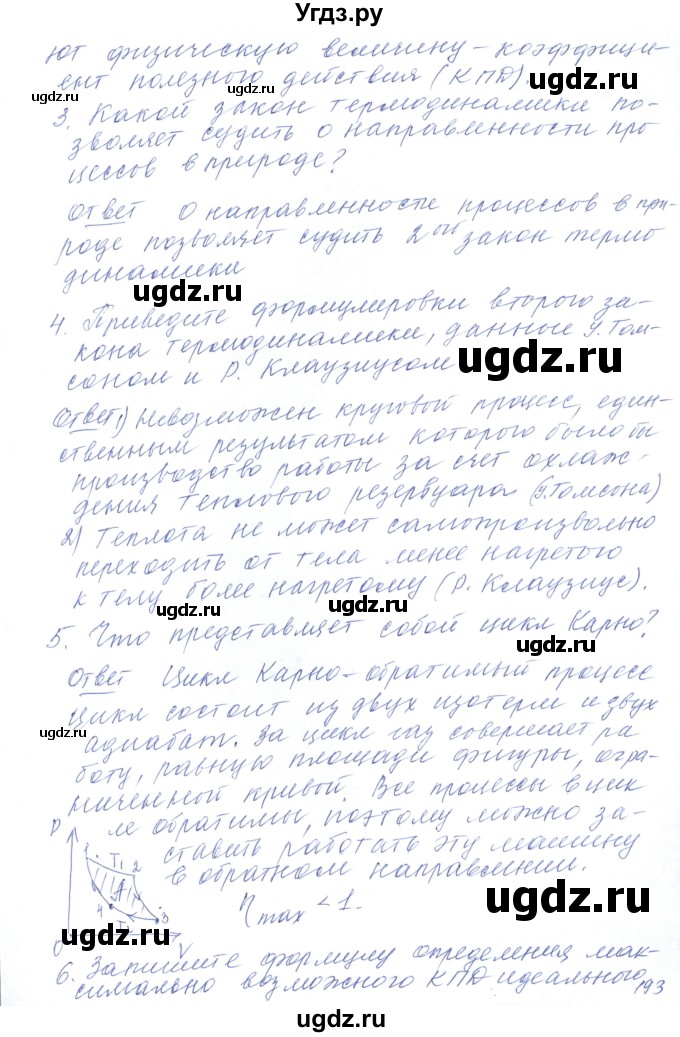 Угдз.ру
ют физическую величину – коэффици-
ент полезного действия (КПД).
ugdz.ru
ugdz.ru
ugdz.ru
3. Какой закон термодинамики по-
зволяет судить о направленности про
цессов в природе?
Ответ О направленности процессов в при-
роде позволяет судить 2ой закон термо
динамики
ugdz.ru
ugdz.ru
4. Приведите формулировки второго за-
кона термодинамики, данные У. Том-
соном и Р. Клаузиусом
ugdz.ru
Ответ 1) Невозможен круговой процесс, един-
ственным результатом которого было бы
производство работы за счёт охлаж-
дения теплового резервуара (У. Томсона)
2) Теплота не может самопроизвольно
переходить от тела менее нагретого
к телу более нагретому (Р. Клаузиус).
ugdz.ru
ugdz.ru
5. Что представляет собой цикл Карно?
Ответ Цикл Карно – обратимый процесс
ugdz.ru
Цикл состоит из двух изотерм и двух
адиабат. За цикл газ совершает ра
боту, равную площади фигуры, огра-
ниченной кривой. Все процессы в цик
ле обратимы, поэтому можно за-
ставить работать эту машину
в обратном направлении.
P
1 T1 2
A
4 3
T2
0 V
ηmax < 1.
ugdz.ru
6. Запишите формулу определения мак-
симально возможного КПД идеального
193
ugdz.ru
ugdz.ru